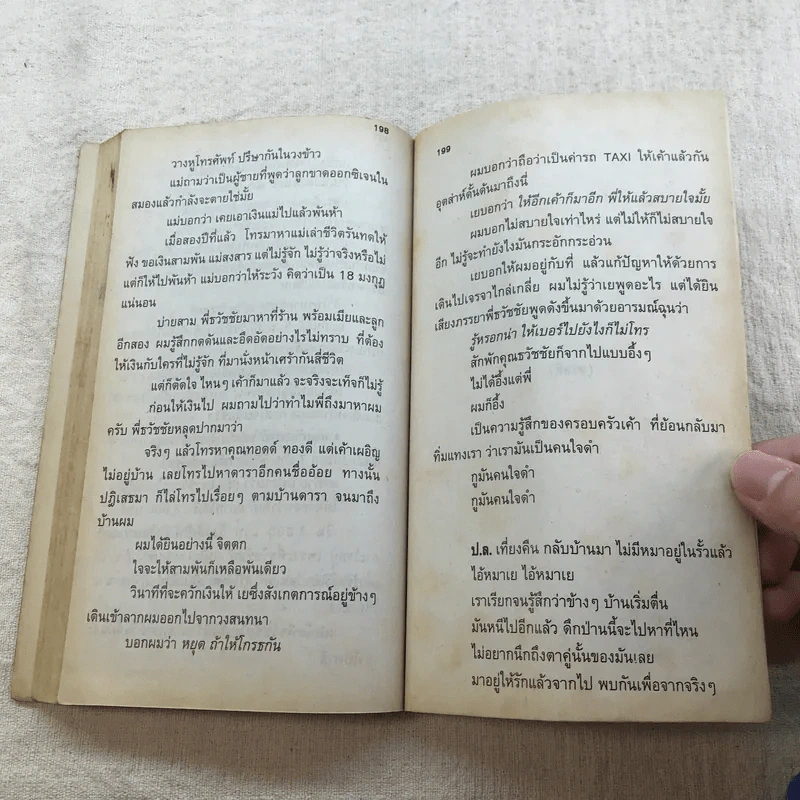 198
วางหูโทรศัพท์ ปรึษากันในวงข้าว
แม่ถามว่าเป็นผู้ชายที่พูดว่าลูกขาดออกซิเจนใน
สมองแล้วกำลังจะตายใช่มั้ย
แม่บอกว่า เคยเอาเงินแม่ไปแล้วพันห้า
เมื่อสองปีที่แล้ว โทรมาหาแม่เล่าชีวิตรันทดให้
ฟัง ขอเงินสามพัน แม่สงสาร แต่ไม่รู้จัก ไม่รู้ว่าจริงหรือไม่
แต่ก็ให้ไปพันห้า แม่บอกว่าให้ระวัง คิดว่าเป็น 18 มงกุฎ
แน่นอน
บ่ายสาม พี่ธวัชชัยมาหาที่ร้าน พร้อมเมียและลูก
อีกสอง ผมรู้สึกกดดันและอึดอัดอย่างไรไม่ทราบ ที่ต้อง
ให้เงินกับใครที่ไม่รู้จัก ที่มานั่งหน้าเศร้ากันสี่ชีวิต
แต่ก็ตัดใจ ไหนๆ เค้าก็มาแล้ว จะจริงจะเท็จก็ไม่รู้
ก่อนให้เงินไป ผมถามไปว่าทำไมพี่ถึงมาหาผม
ครับ พี่ธวัชชัยหลุดปากมาว่า
จริงๆ แล้วโทรหาคุณทอดด์ ทองดี แต่เค้าเผอิญ
ไม่อยู่บ้าน เลยโทรไปหาดาราอีกคนชื่ออ้อย ทางนั้น
ปฏิเสธมา ก็ไล่โทรไปเรื่อยๆ ตามบ้านดารา จนมาถึง
บ้านผม
ผมได้ยินอย่างนี้ จิตตก
ใจจะให้สามพันก็เหลือพันเดียว
วินาทีที่จะควักเงินให้ เยซึ่งสังเกตการณ์อยู่ข้างๆ
เดินเข้าลากผมออกไปจากวงสนทนา
บอกผมว่า หยุด ถ้าให้โกรธกัน
199
ผมบอกว่าถือว่าเป็นค่ารถ TAXI ให้เค้าแล้วกัน
อุตส่าห์ดั้นด้นมาถึงนี่
เยบอกว่า ให้อีกเค้าก็มาอีก พี่ให้แล้วสบายใจมั้ย
ผมบอกไม่สบายใจเท่าไหร่ แต่ไม่ให้ก็ไม่สบายใจ
อีก ไม่รู้จะทำยังไงมันกระอักกระอ่วน
เยบอกให้ผมอยู่กับที่ แล้วแก้ปัญหาให้ด้วยการ
เดินไปเจรจาไกล่เกลี่ย ผมไม่รู้ว่าเยพูดอะไร แต่ได้ยิน
เสียงภรรยาพี่ธวัชชัยพูดดังขึ้นมาด้วยอารมณ์ฉุนว่า
รู้หรอกน่า ให้เบอร์ไปยังไงก็ไม่โทร
สักพักคุณธวัชชัยก็จากไปแบบอึ้งๆ
ไม่ได้อึ้งแต่พี่
ผมก็อึ้ง
เป็นความรู้สึกของครอบครัวเค้า ที่ย้อนกลับมา
ทิ่มแทงเรา ว่าเรามันเป็นคนใจดำ
กูมันคนใจดำ
กูมันคนใจดำ
ป.ล. เที่ยงคืน กลับบ้านมา ไม่มีหมาอยู่ในรั้วแล้ว
ไอ้หมาเย ไอ้หมาเย
เราเรียกจนรู้สึกว่าข้างๆ บ้านเริ่มตื่น
มันหนีไปอีกแล้ว ดึกป่านนี้จะไปหาที่ไหน
ไม่อยากนึกถึงตาคู่นั้นของมันเลย
มาอยู่ให้รักแล้วจากไป พบกันเพื่อจากจริงๆ